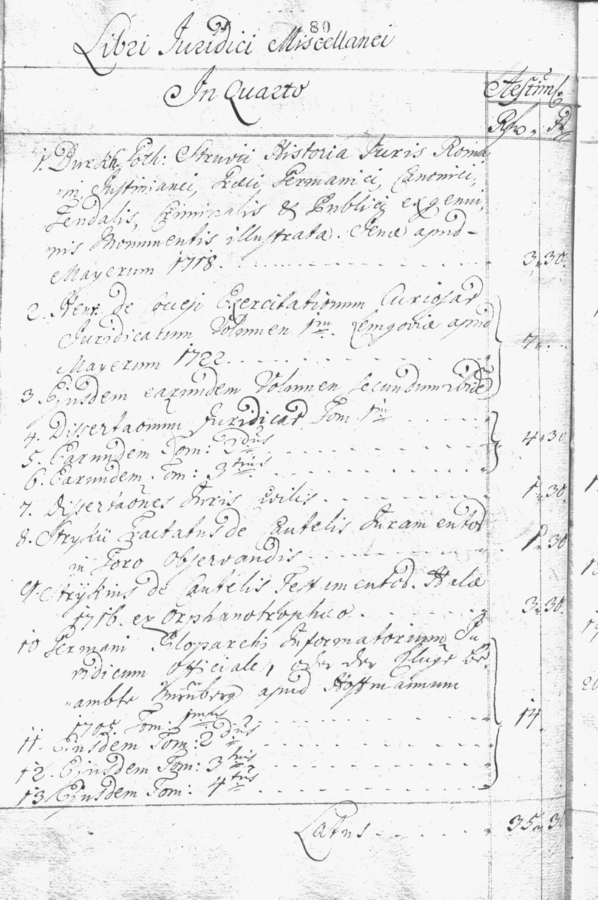 80
Libri Juridici Miscellanei
In Quarto
Aestim
Rf xr
1. Burkh. Goth: Struvii Historia Juris Roma,
ni, Justinianei, Graeci, Germanici, Canonici,
Feudalis, Criminalis & Publici ex genui,
nis Monumentis illustrata. Jenae apud
Mayerum 1718. 3. 30.
2. Henr. de Cocceji Exercitationum Curiosar
Juridicarum Volumen 1m. Lemgoviae apud
Mayerum 1722
7.
3 Ejusdem earundem Volumen secundum ibid
4. Dissertaonum Juridicar Tom 1m
5. Earundem Tom: 2dus 4. 30.
6. Earundem Tom: 3tius
7. Dissertaōnes Juris Civilis 1. 30.
8. Strykii Tractatus de Cautelis Juramentor
in Foro Observandis 1. 30
9. Strykius de Cautelis Testamentor. Halae
1716. ex Orphanotropheo. 3. 30.
10 Germani Informatorium Ju
ridicum Officiale, oder der Kluge Be,
ambte Nürnberg apud Hoffmannum
1705. Tom: 1mus
14
11. Ejusdem Tom: 2dus
12. Ejusdem Tom: 3tius
13 Ejusdem Tom: 4tus
Latus 35. 30